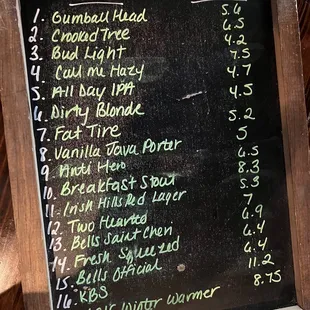 1. Gumball Head 5.6
2. Crooked Tree 6.5
3. Bud Light 4.2
4 Call me Hazy 7.5
5. All Day IPA 4.7
6. Dirty Blonde 4.5
7. Fat Tire 5.2
8. Vanilla Java Porter 5
9. Anti Hero 6.5
10. Breakfast Stout 8.3
11. Irish Hills Red Lager 5.3
12. Two Hearted 7
13. Bells Saint Chen 6.9
14. Fresh Squeezed 6.4
15. Bells Official 6.4
16. KBS 11.2
Winter Warmer 8.75